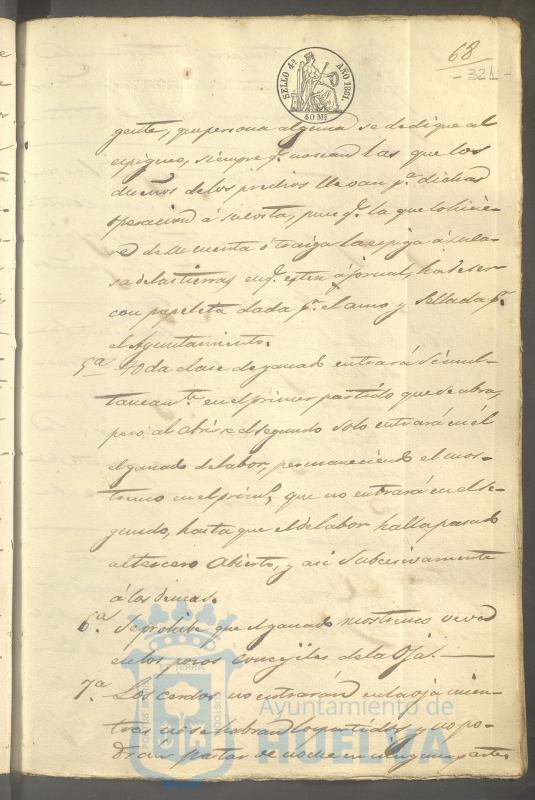 68
- 321 -
SELLO 4º AÑO 1861.
40 Ms
gente, qe persona alguna se dedique al
espigueo, siempre qe no sean las que los
dueños de los predios llevan pª dicha
operacion á su costa, pues qe la que lo hicie-
re de su cuenta ó traiga la espiga á su ca-
sa de las tierras en qe esten á jornal, ha de ser
con papeleta dada pr el amo y sellada pr
el Ayuntamiento.
5ª Toda clase de ganado entrará simul-
taneamte en el primer partido que se abra,
pero al abrirse el segundo solo entrará en él
el ganado de labor, permaneciendo el mos-
trenco en el primº, que no entrará en el se-
gundo, hasta que el de labor halla pasado
al tercero abierto, y asi subcesivamente
á los demas.
6ª Se prohibe que el ganado mostrenco veva
en los pozos concejiles de la Oja.
7ª Los cerdos no entrarán en la oja mien-
tras no se habran los partidos y no po-
dran pastar de noche en ninguna parte
PORTUS MARIS ET TERRAE CUSTODIA
Ayuntamiento de
HUELVA